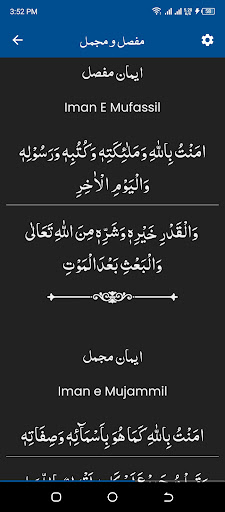 3:52 PM
مفصل و مجمل
ایمان مفصل
Iman E Mufassil
اٰمَنْتُ بِاللهِ وَمَلٰٓئِكَتِهٖ وَكُتُبِهٖ وَرَسُوْلِهٖ
وَالْيَوْمِ الْاٰخِرِ
وَالْقَدْرِ خَيْرِهٖ وَشَرِّهٖ مِنَ اللهِ تَعَالٰى
وَالْبَعْثِ بَعْدَالْمَوْتِ
ایمان مجمل
Iman e Mujammil
اٰمَنْتُ بِاللهِ كَمَا هُوَ بِاَسْمَآئِهٖ وَصِفَاتِهٖ